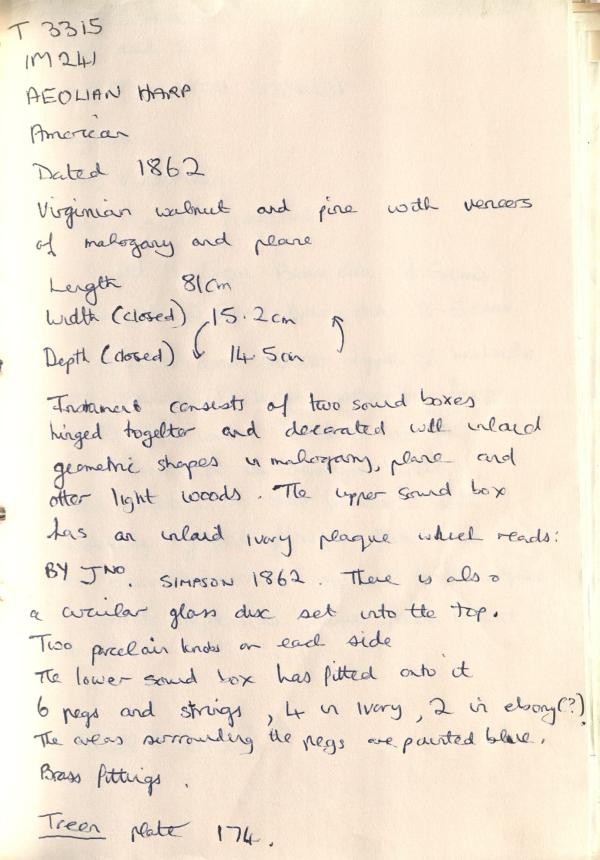 T 3315
IM 241
AEOLIAN HARP
American
Dated 1862
Virginian walnut and pine with veneers
of mahogany and plane
Length 81cm
Width (closed) 15.2cm
Depth (closed) 14.5cm
Instrument consists of two sound boxes
hinged together and decorated with inlaid
geometric shapes in mahogany, plane and
other light woods. The upper sound box
has an inlaid ivory plaque which reads:
BY JNO. SIMPSON 1862. There is also
a circular glass disc set into the top.
Two porcelain knobs on each side
The lower sound box has fitted onto it
6 pegs and strings, 4 in ivory, 2 in ebony(?).
The areas surrounding the pegs are painted blue.
Brass fittings.
Treen plate 174.